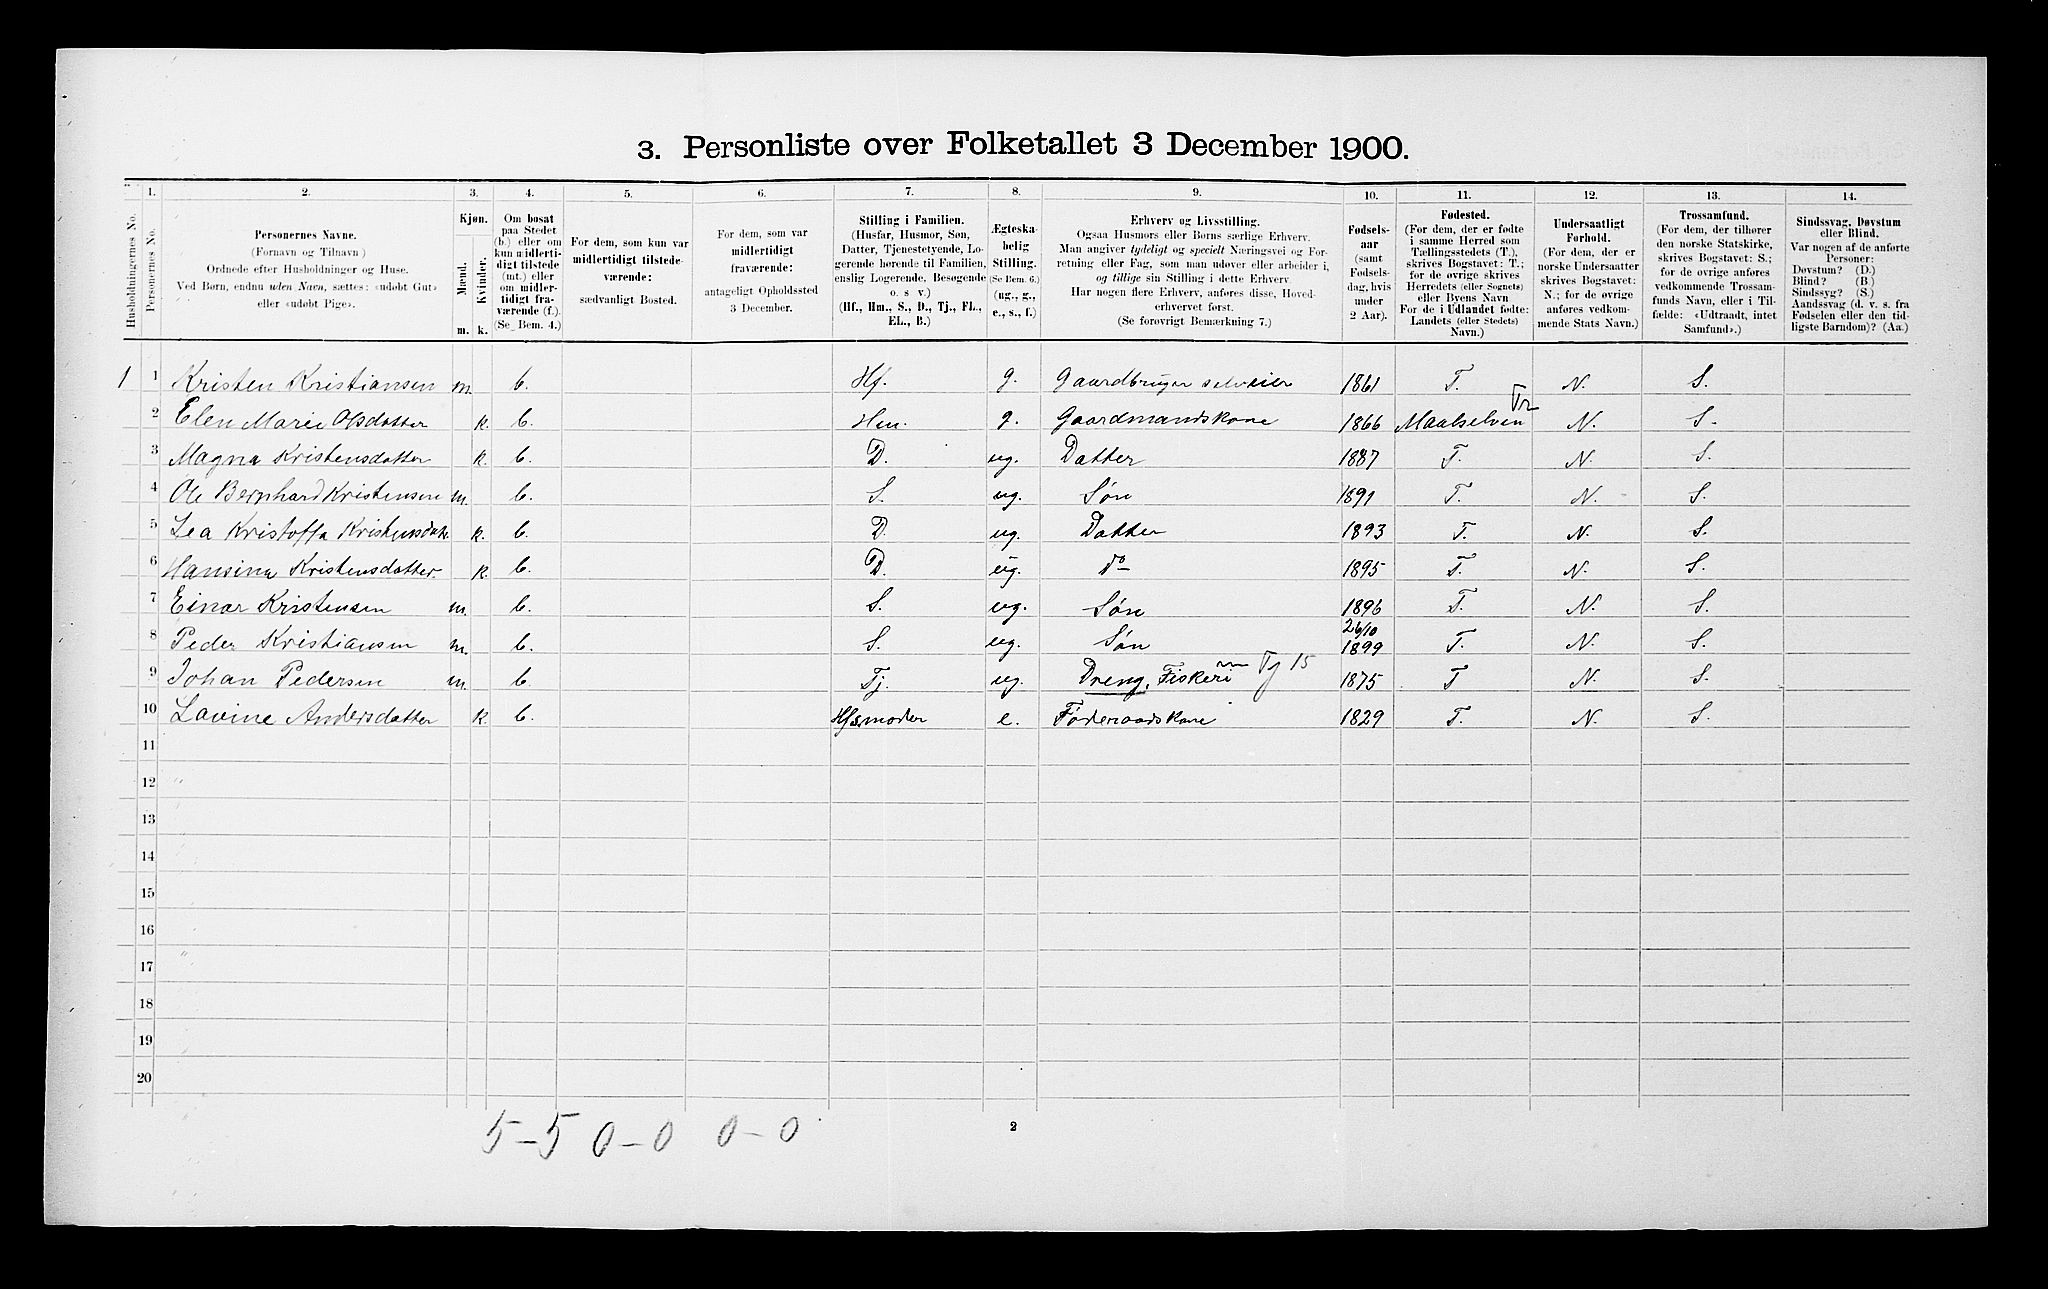 3. Personliste over Folketallet 3 December 1900.
1. 2. 3. 4. 5. 6. 7. 8. 9. 10. 11. 12. 13. 14.
Husholdningernes No.
Personernes No.
Personernes Navne.
(Fornavn og Tilnavn)
Ordnede efter Husholdninger og Huse.
Ved Børn, endnu uden Navn, sættes: «udøbt Gut»
eller «udøbt Pige».
Kjøn.
Mænd.
Kvinder.
m. k.
Om bosat
paa Stedet
(b.) eller om
kun midlerti-
digt tilstede
(mt.) eller
om midler-
tidigt fra-
værende (f.).
(Se Bem. 4.)
For dem, som kun var
midlertidigt tilstede-
værende:
sædvanligt Bosted.
For dem, som var
midlertidigt
fraværende:
antageligt Opholdssted
3 December.
Stilling i Familien.
(Husfar, Husmor, Søn,
Datter, Tjenestetyende, Lo-
gerende hørende til Familien,
enslig Logerende, Besøgende
o. s v.)
(Hf., Hm., S., D., Tj., FL.,
EL., B.)
Ægteska-
belig
Stilling.
(Se Bem. 6.)
(ug., g.,
e., s., f.)
Erhverv og Livsstilling.
Ogsaa Husmors eller Børns særlige Erhverv.
Man angiver tydeligt og specielt Næringsvei og For-
retning eller Fag, som man udøver eller arbeider i,
og tillige sin Stilling i dette Erhverv.
Har nogen flere Erhverv, anføres disse, Hoved-
erhvervet først.
(Se forøvrigt Bemærkning 7.)
Fødsels-
aar
(samt
Fødsels-
dag, hvis
under
2 Aar).
Fødested.
(For dem, der er fødte
i samme Herred som
Tællingsstedets (T.),
skrives Bogstavet: T.;
for de øvrige skrives
Herredets (eller Sognets)
eller Byens Navn
For de i Udlandet fødte:
Landets (eller Stedets)
Navn.)
Undersaatligt
Forhold.
(For dem, der er
norske Undersaatter
skrives Bogstavet:
N.; for de øvrige
anføres vedkom-
mende Stats Navn.)
Trossamfund.
(For dem, der tilhører
den norske Statskirke,
skrives Bogstavet: S.;
for de øvrige anføres
vedkommende Trossam-
funds Navn, eller i Til-
fælde: «Udtraadt, intet
Samfund».)
Sindssvag, Døvstum
eller Blind.
Var nogen af de anførte
Personer:
Døvstum? (D.)
Blind? (B.)
Sindssyg? (S.)
Aandssvag (d. v. s. fra
Fødselen eller den tid-
ligste Barndom)? (Aa.)
1 1 Kristen Kristiansen m. b. Hf. g. Gaardbruger selveier 1861 T. N. S.
2 Elen Marie Olsdatter k. b. Hm. g. Gaardmandskone 1866 Maalselven Tr N. S.
3 Magna Kristensdatter k. b. D. ug. Datter 1887 T. N. S.
4 Ole Bernhard Kristensen m. b. S. ug. Søn 1891 T. N. S.
5 Lea Kristoffa Kristensdatr. k. b. D. ug. Datter 1893 T. N. S.
6 Hansina Kristensdatter. k. b. D. ug. do 1895 T. N. S.
7 Einar Kristensen m. b. S. ug. Søn 1896 T. N. S.
8 Peder Kristiansen m. b. S. ug. Søn 26/10 1899 T. N. S.
9 Johan Pedersen m. b. Tj. ug. Dreng, Fiskeri Tj 15 1875 T N. S.
10 Lavine Andersdatter k. b. Hfsmoder e. Føderaadskone 1829 T. N. S.
11
12
13
14
15
16
17
18
19
20
5-5 0-0 0-0
2